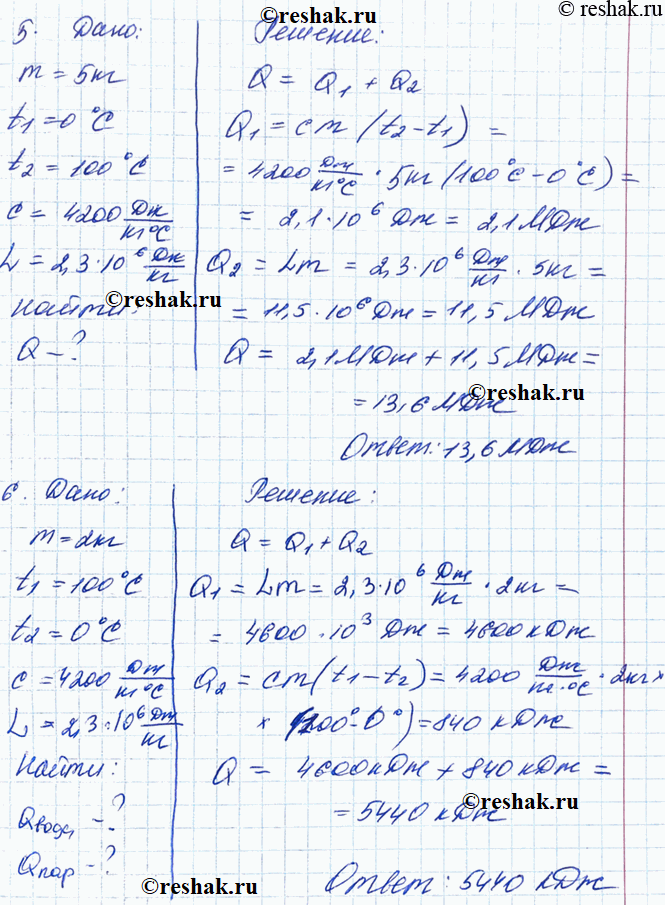 © reshak.ru
5. Дано:
m = 5кг
t₁ = 0°C
t₂ = 100°C
c = 4200 Дж/кг°C
L = 2,3·10⁶ Дж/кг
Найти:
Q - ?
Решение:
Q = Q₁ + Q₂
Q₁ = cm (t₂ - t₁) =
= 4200 Дж/кг°C · 5кг (100°C - 0°C) =
= 2,1·10⁶ Дж = 2,1 МДж
Q₂ = Lm = 2,3·10⁶ Дж/кг · 5кг =
© reshak.ru
= 11,5·10⁶ Дж = 11,5 МДж
Q = 2,1 МДж + 11,5 МДж =
© reshak.ru
= 13,6 МДж
Ответ: 13,6 МДж
6. Дано:
m = 2кг
t₁ = 100°C
t₂ = 0°C
c = 4200 Дж/кг°C
L = 2,3·10⁶ Дж/кг
Найти:
Qводы - ?
Qпар - ?
Решение:
Q = Q₁ + Q₂
Q₁ = Lm = 2,3·10⁶ Дж/кг · 2кг =
= 4600·10³ Дж = 4600 кДж
Q₂ = cm (t₁ - t₂) = 4200 Дж/кг·°C · 2кг ×
× (100° - 0°) = 840 кДж
Q = 4600 кДж + 840 кДж =
© reshak.ru
= 5440 кДж
© reshak.ru
Ответ: 5440 кДж
© reshak.ru